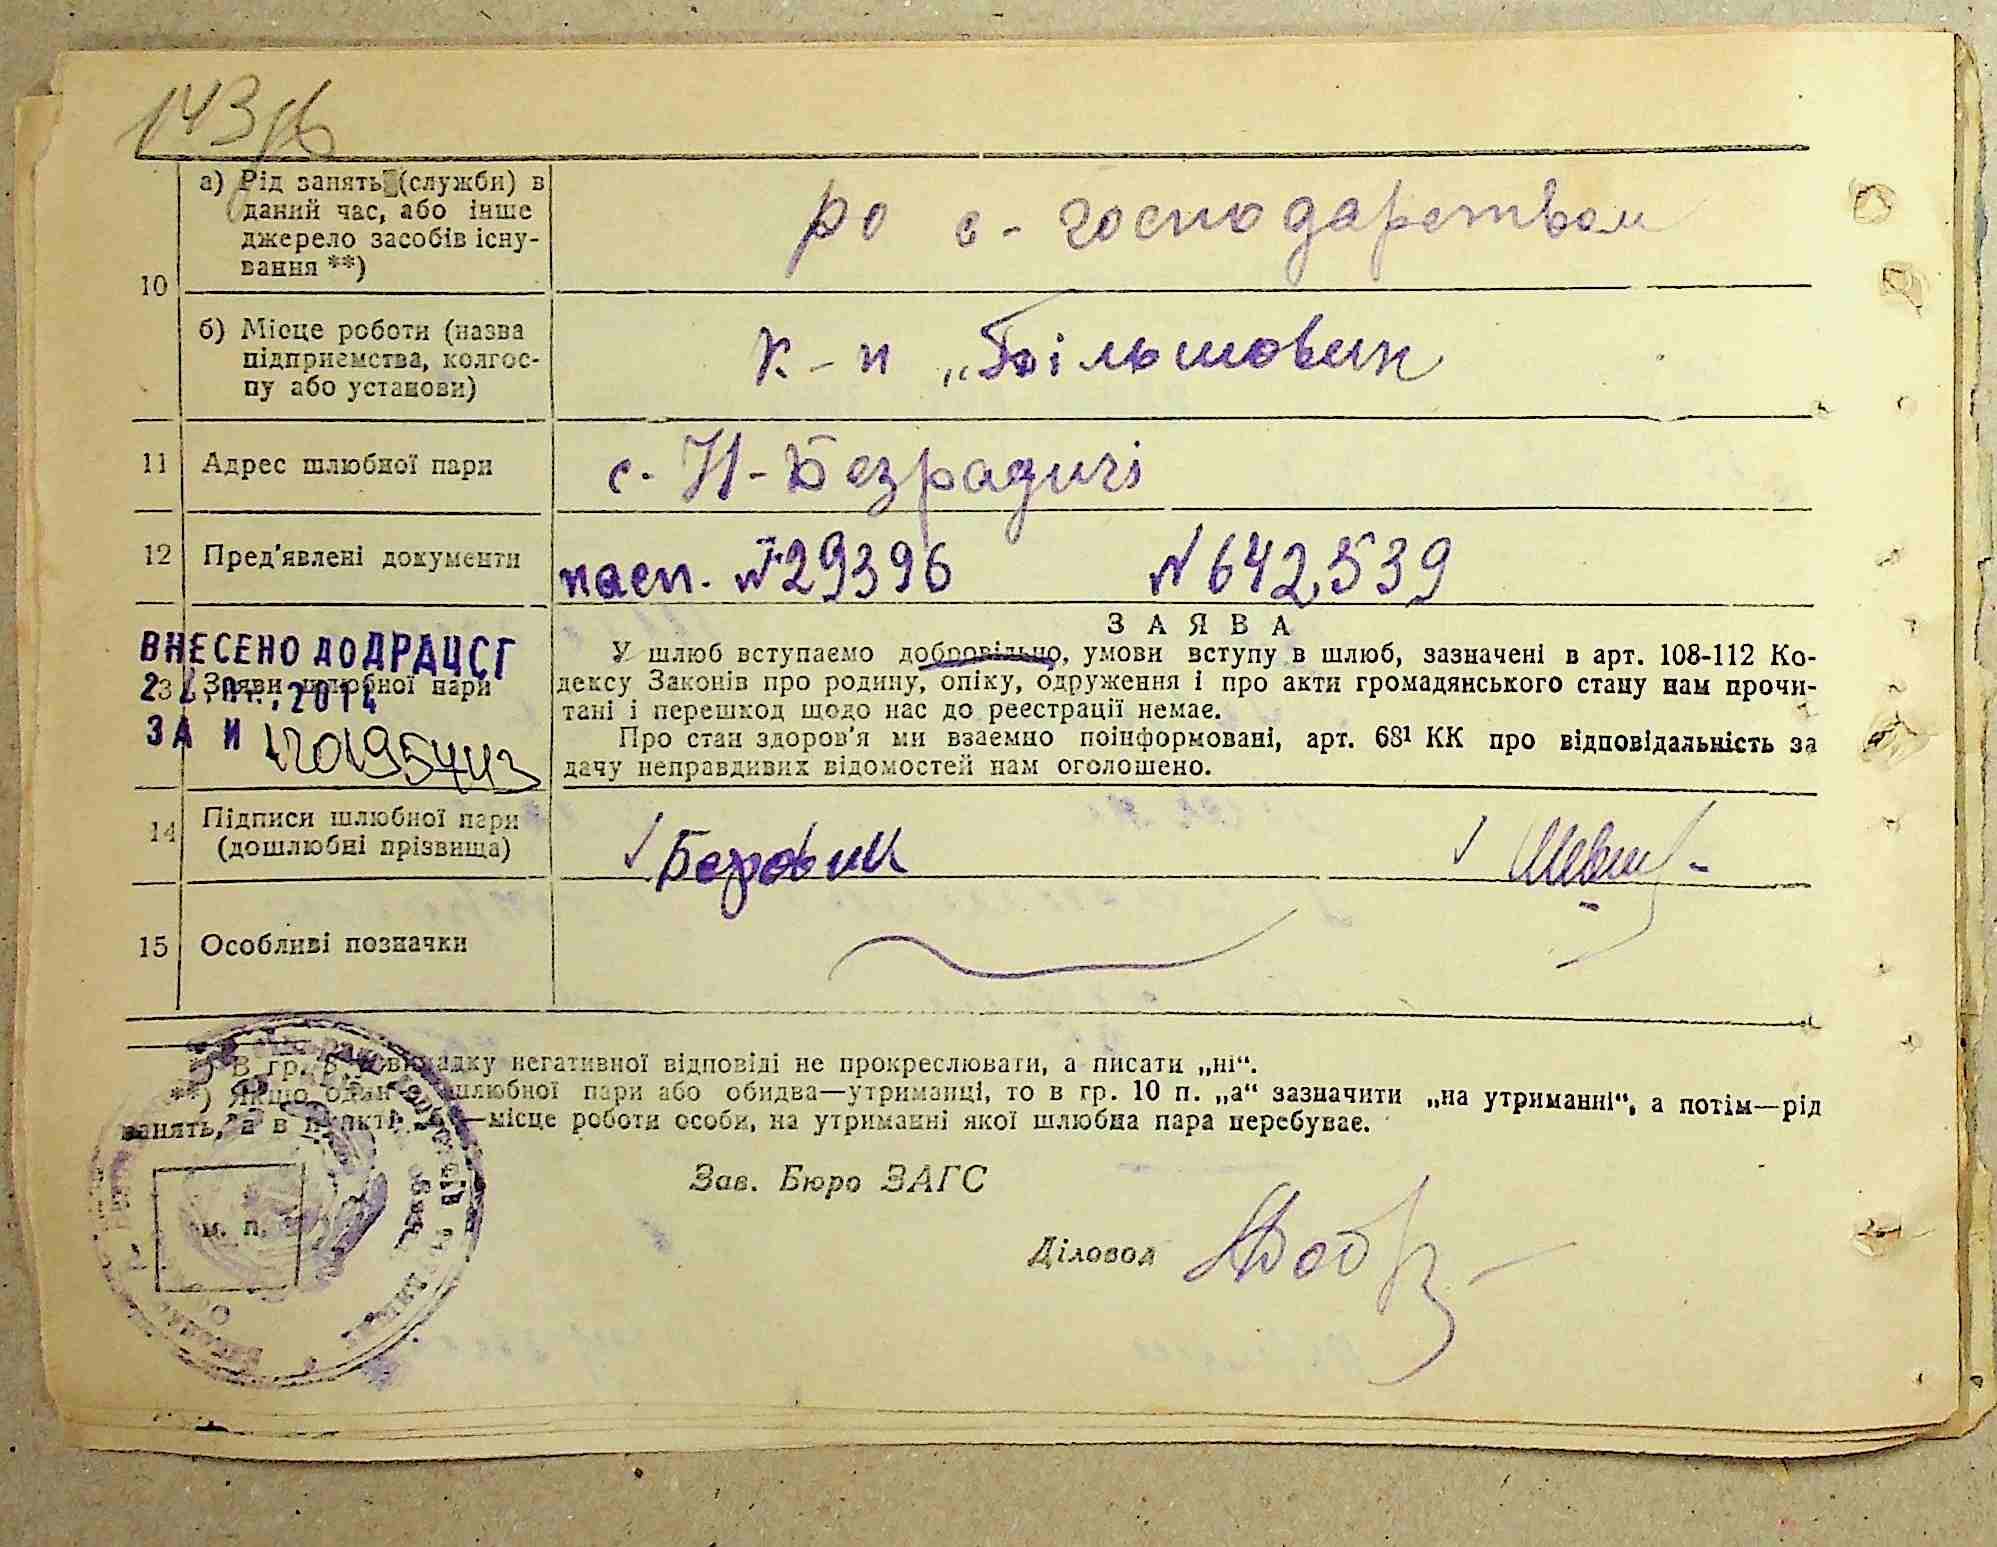 143зв
10
а) Рід занять (служби) в
даний час, або інше
джерело засобів існу-
вання **)
ро с-господарством
б) Місце роботи (назва
підприємства, колгос-
пу або установи)
к-п „Більшовик
11 Адрес шлюбної пари
с. Н-Безрадичі
12 Пред'явлені документи
пасп. №29396 №642539
ВНЕСЕНО ДО ДРАЦСГ
2014
ЗА №
Заяви шлюбної пари
ЗАЯВА
У шлюб вступаємо добровільно, умови вступу в шлюб, зазначені в арт. 108-112 Ко-
дексу Законів про родину, опіку, одруження і про акти громадянського стану нам прочи-
тані і перешкод щодо нас до реєстрації немає.
Про стан здоров'я ми взаємно поінформовані, арт. 68¹ КК про відповідальність за
дачу неправдивих відомостей нам оголошено.
14 Підписи шлюбної пари
(дошлюбні прізвища)
15 Особливі позначки
*) В гр. у випадку негативної відповіді не прокреслювати, а писати „ні“.
**) Якщо один з шлюбної пари або обидва—утриманці, то в гр. 10 п. „а“ зазначити „на утриманні“, а потім—рід
занять, а в пункті „б“—місце роботи особи, на утриманні якої шлюбна пара перебуває.
Зав. Бюро ЗАГС
м. п.
Діловод